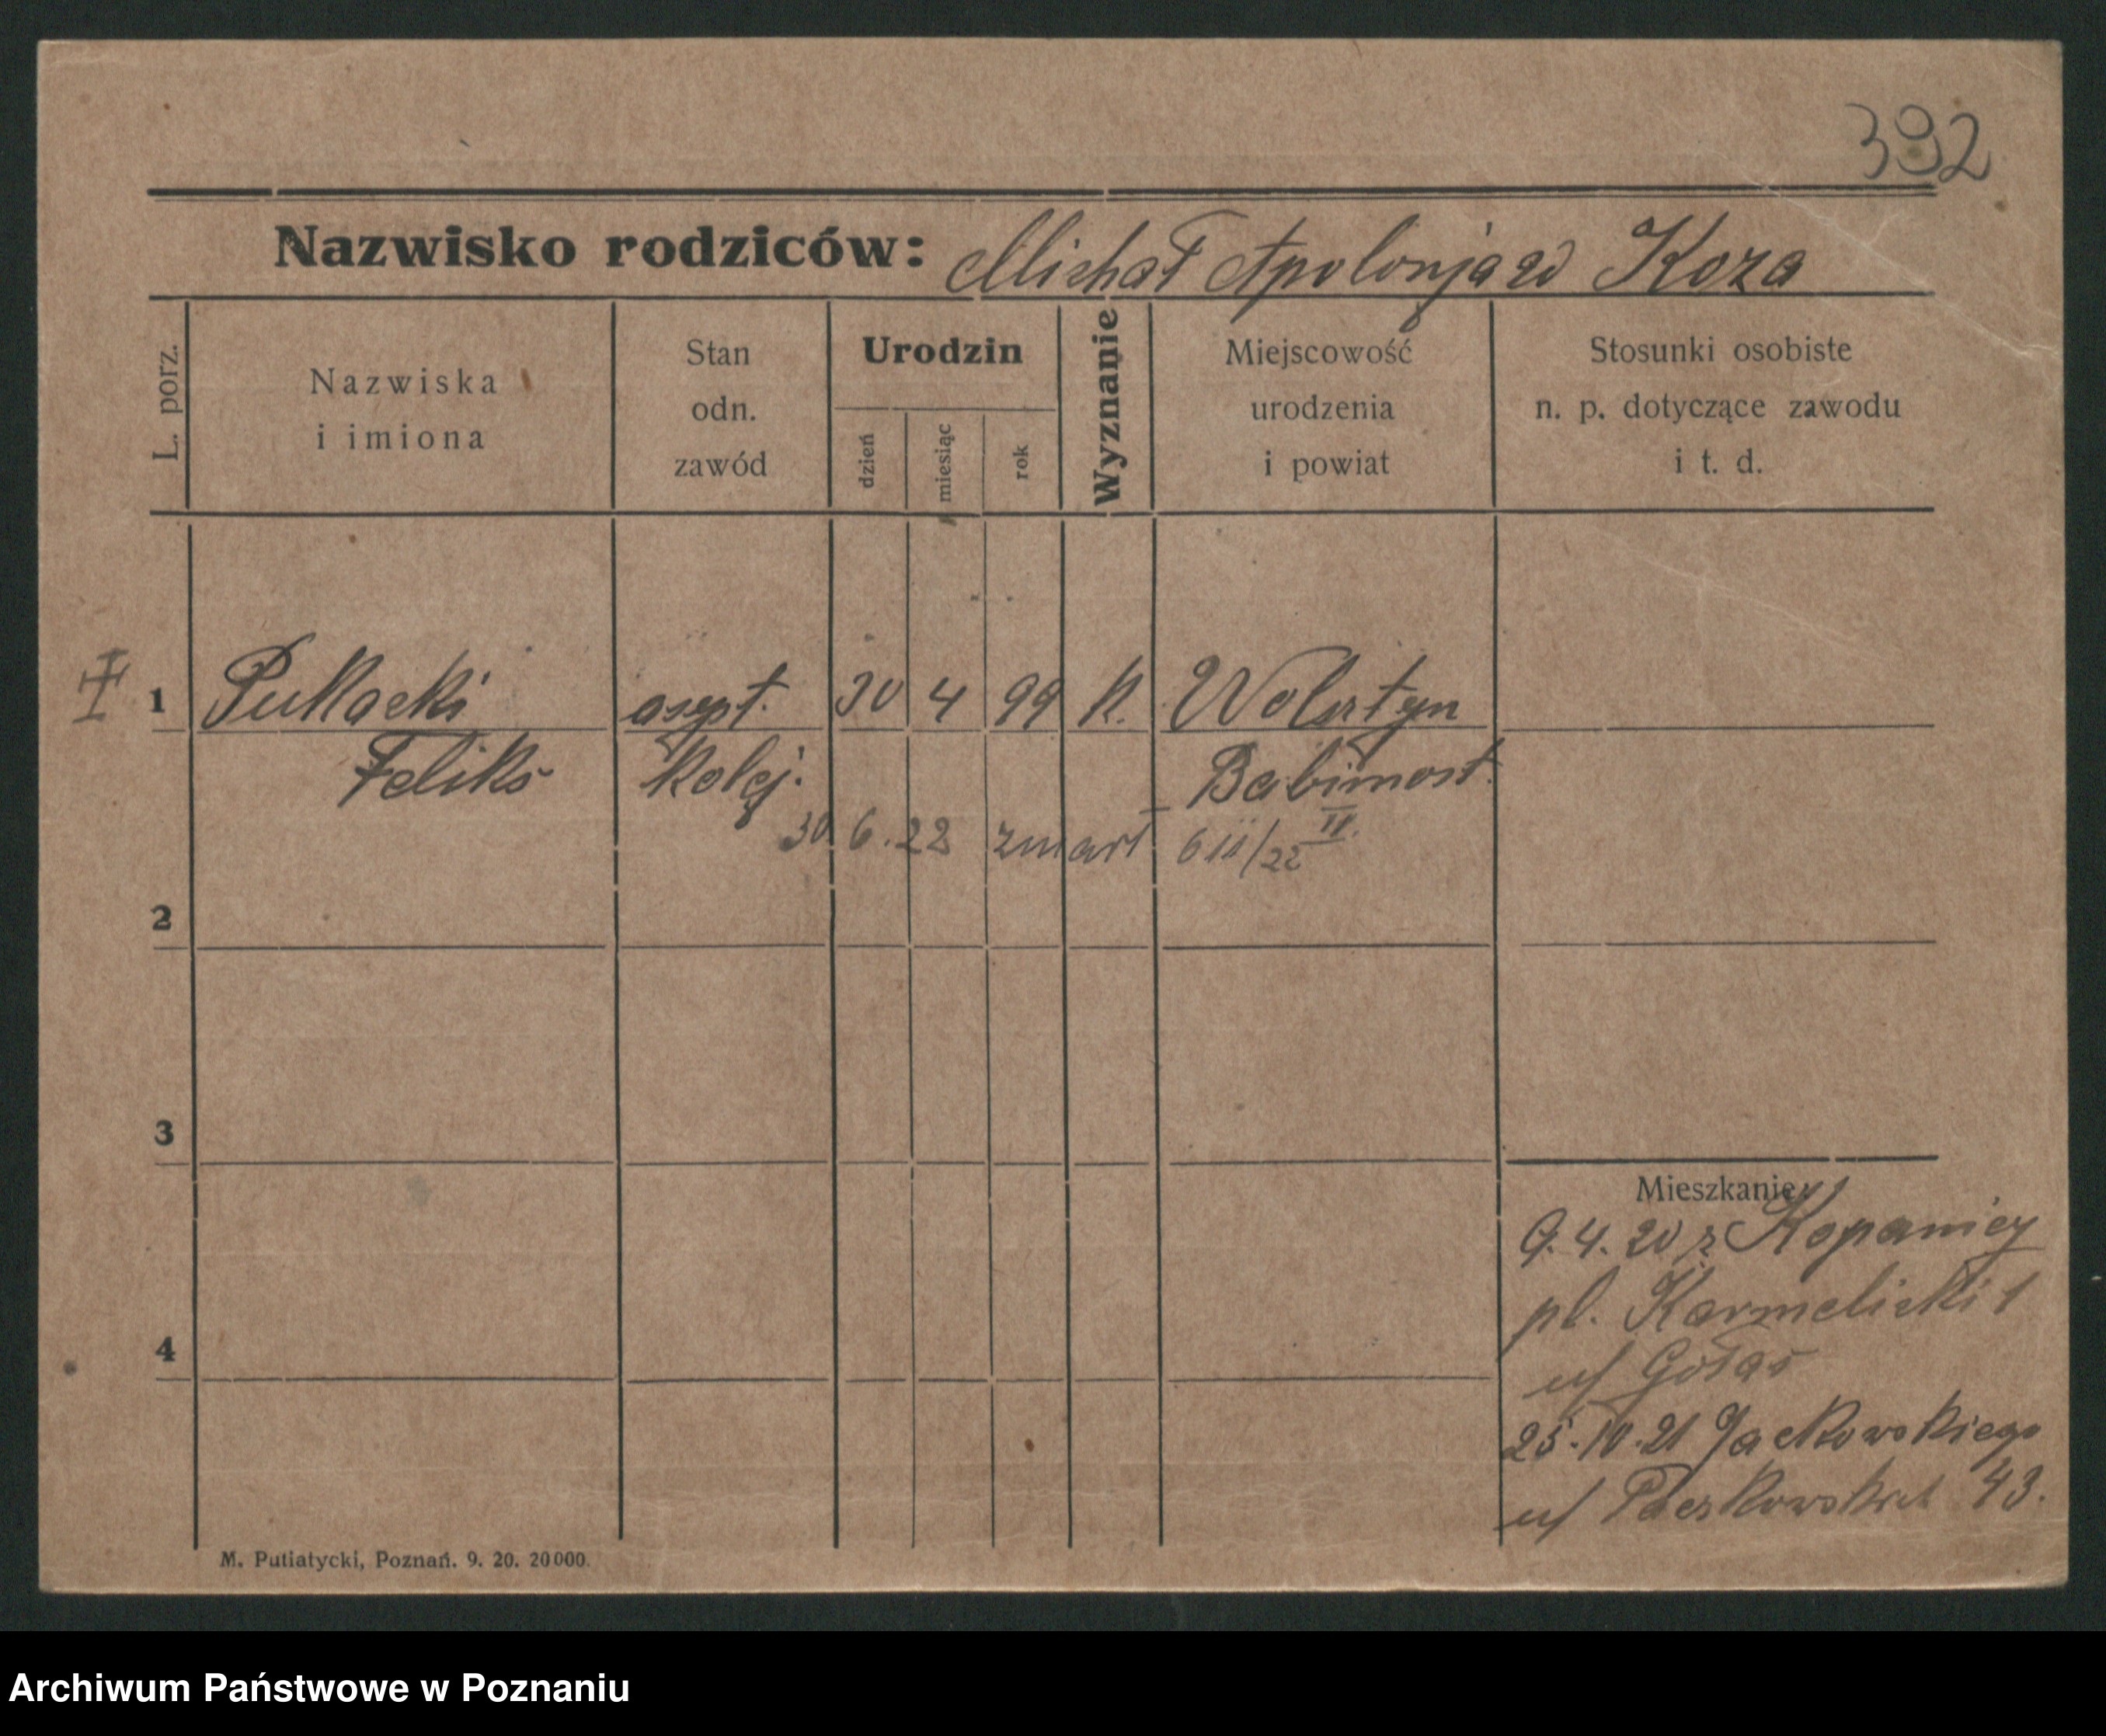 392
Nazwisko rodziców: Michał Apolonja zd Koza
L. porz.
Nazwiska
i imiona
Stan
odn.
zawód
Urodzin
dzień
miesiąc
rok
Wyznanie
Miejscowość
urodzenia
i powiat
Stosunki osobiste
n. p. dotyczące zawodu
i t. d.
1 Pukacki asypt. 30 4 99 K. Wolsztyn
Feliks kolej. Babimost.
30. 6. 22 zmarł
2
3
Mieszkanie:
9. 4. 20 z Kopanicy
pl. Karmelicki 1
4
u/ Gołaś
25. 10. 21 Jackowskiego
u/ 43.
M. Putiatycki, Poznań. 9. 20. 20000.
Archiwum Państwowe w Poznaniu